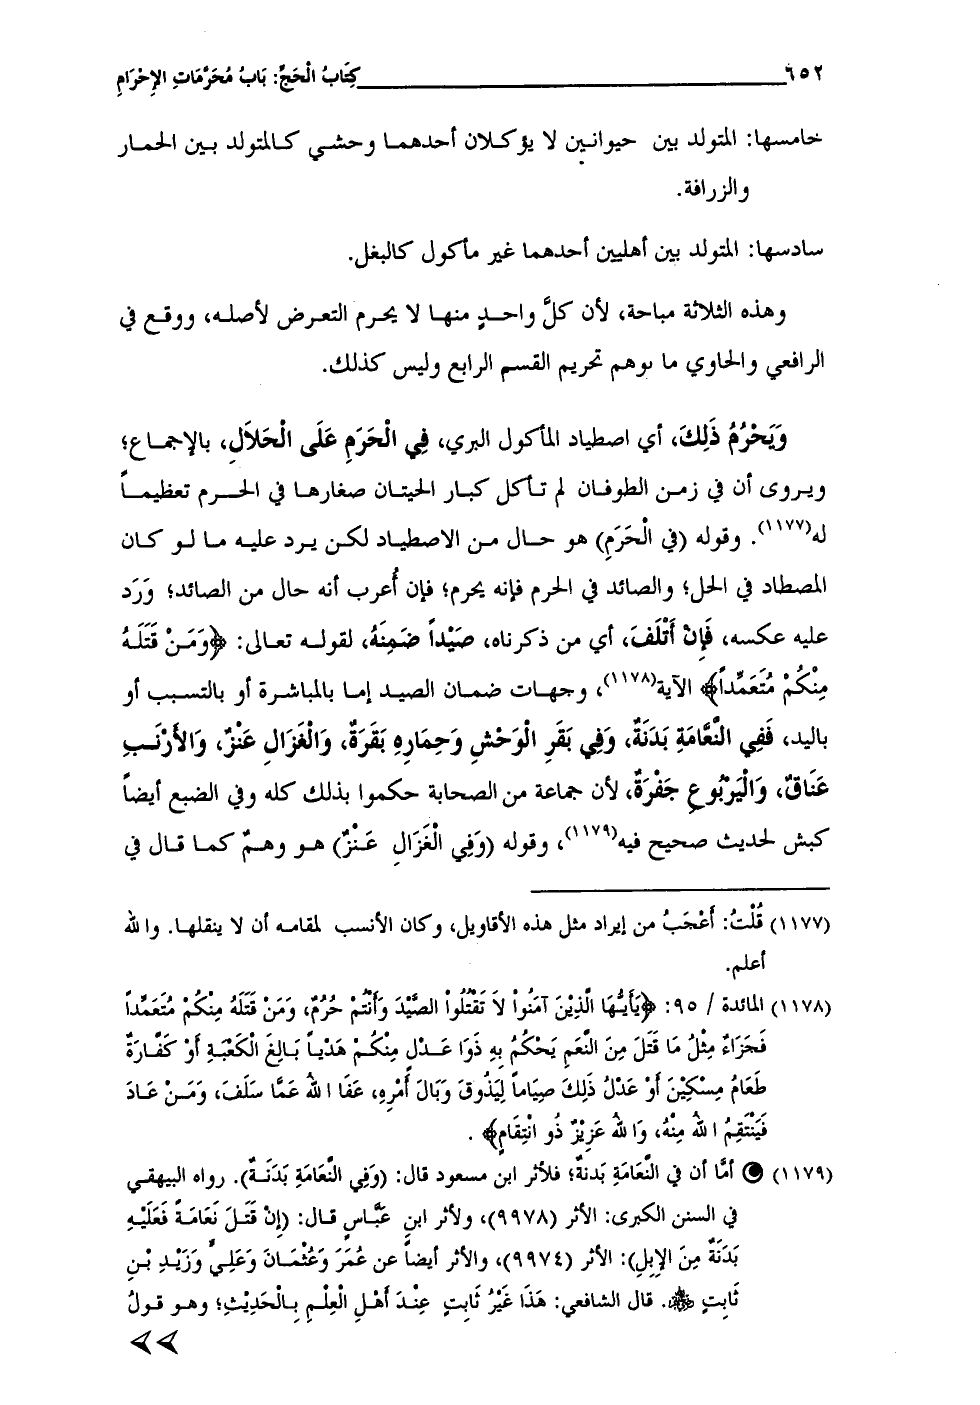 ٦٥٢ كِتَابُ الْحَجِّ: بَابُ مُحَرَّمَاتِ الإِحْرَامِ
خامسها: المتولد بين حيوانين لا يؤكلان أحدهما وحشي كالمتولد بين الحمار
والزرافة.
سادسها: المتولد بين أهليين أحدهما غير مأكول كالبغل.
وهذه الثلاثة مباحة، لأن كلَّ واحدٍ منها لا يحرم التعرض لأصله، ووقع في
الرافعي والحاوي ما يوهم تحريم القسم الرابع وليس كذلك.
وَيَحْرُمُ ذَلِكَ، أي اصطياد المأكول البري، فِي الْحَرَمِ عَلَى الْحَلاَلِ، بالإجماع؛
ويروى أن في زمن الطوفان لم تأكل كبار الحيتان صغارها في الحرم تعظيماً
له(١١٧٧). وقوله (في الْحَرَمِ) هو حال من الاصطياد لكن يرد عليه ما لو كان
المصطاد في الحل؛ والصائد في الحرم فإنه يحرم؛ فإن أُعرب أنه حال من الصائد؛ وَرَد
عليه عكسه، فَإِنْ أَتْلَفَ، أي من ذكرناه، صَيْداً ضَمِنَهُ، لقوله تعالى: ﴿وَمَنْ قَتَلَهُ
مِنْكُمْ مُتَعَمِّداً﴾ الآية(١١٧٨)، وجهات ضمان الصيد إما بالمباشرة أو بالتسبب أو
باليد، فَفِي النَّعَامَةِ بَدَنَةٌ، وَفِي بَقَرِ الْوَحْشِ وَحِمَارِهِ بَقَرَةٌ، وَالْغَزَالِ عَنْزٌ، وَالأَرْنَبِ
عَنَاقٌ، وَالْيَرْبُوعِ جَفْرَةٌ، لأن جماعة من الصحابة حكموا بذلك كله وفي الضبع أيضاً
كبش لحديث صحيح فيه(١١٧٩)، وقوله (وَفِي الْغَزَالِ عَنْزٌ) هو وهمٌ كما قال في
(١١٧٧) قُلْتُ: أَعْجَبُ من إيراد مثل هذه الأقاويل، وكان الأنسب لمقامه أن لا ينقلها. والله
أعلم.
(١١٧٨) المائدة / ٩٥: ﴿يَأَيُّهَا الَّذِيْنَ آمَنُواْ لاَ تَقْتُلُواْ الصَّيْدَ وَأَنْتُمْ حُرُمٌ، وَمَنْ قَتَلَهُ مِنْكُمْ مُتَعَمِّداً
فَجَزَاءٌ مِثْلُ مَا قَتَلَ مِنَ النَّعَمِ يَحْكُمُ بِهِ ذَوَا عَدْلٍ مِنْكُمْ هَدْياً بَالِغَ الْكَعْبَةِ أَوْ كَفَّارَةٌ
طَعَامُ مِسْكِيْنَ أَوْ عَدْلُ ذَلِكَ صِيَاماً لِيَذُوقَ وَبَالَ أَمْرِهِ، عَفَا اللهُ عَمَّا سَلَفَ، وَمَنْ عَادَ
فَيَنْتَقِمُ اللهُ مِنْهُ، وَاللهُ عَزِيْزٌ ذُو انْتِقَامٍ﴾ .
(١١٧٩) أمَّا أن في النَّعَامَةِ بَدنةٌ؛ فلأثر ابن مسعود قال: (وَفِي النَّعَامَةِ بَدَنَةٌ). رواه البيهقي
في السنن الكبرى: الأثر (٩٩٧٨)، ولأثر ابنِ عَبَّاسٍ قال: (إِنْ قَتَلَ نَعَامَةً فَعَلَيْهِ
بَدَنَةٌ مِنَ الإِبِلِ): الأثر (٩٩٧٤)، والأثر أيضاً عن عُمَرَ وَعُثْمَانَ وَعَلِيٍّ وَزَيْدِ بْنِ
ثَابِتٍ ﷺ. قال الشافعي: هَذَا غَيْرُ ثَابِتٍ عِنْدَ أَهْلِ الْعِلْمِ بِالْحَدِيْثِ؛ وهو قولُ